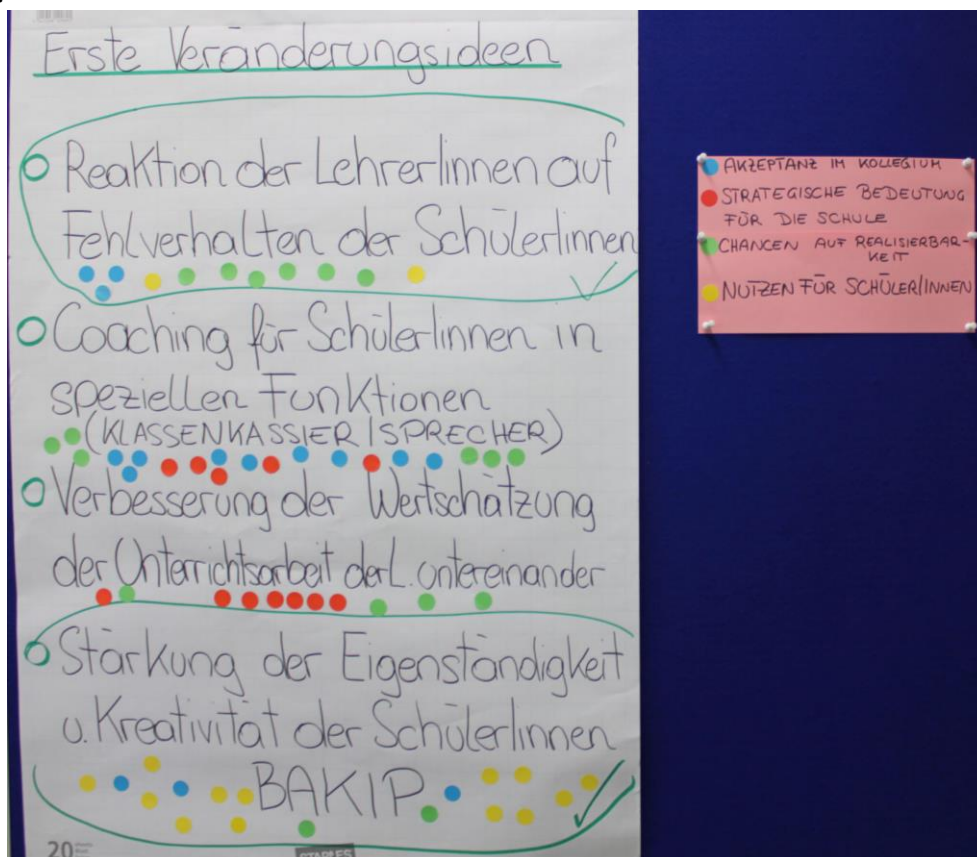 Erste Veränderungsideen
Reaktion der LehrerInnen auf
Fehlverhalten der SchülerInnen
Coaching für SchülerInnen in
speziellen Funktionen
(KLASSENKASSIER / SPRECHER)
Verbesserung der Wertschätzung
der Unterrichtsarbeit der L. untereinander
Stärkung der Eigenständigkeit
u. Kreativität der SchülerInnen
BAKIP
20
STAPLES
AKZEPTANZ IM KOLLEGIUM
STRATEGISCHE BEDEUTUNG
FÜR DIE SCHULE
CHANCEN AUF REALISIERBAR-
KEIT
NUTZEN FÜR SCHÜLER/INNEN